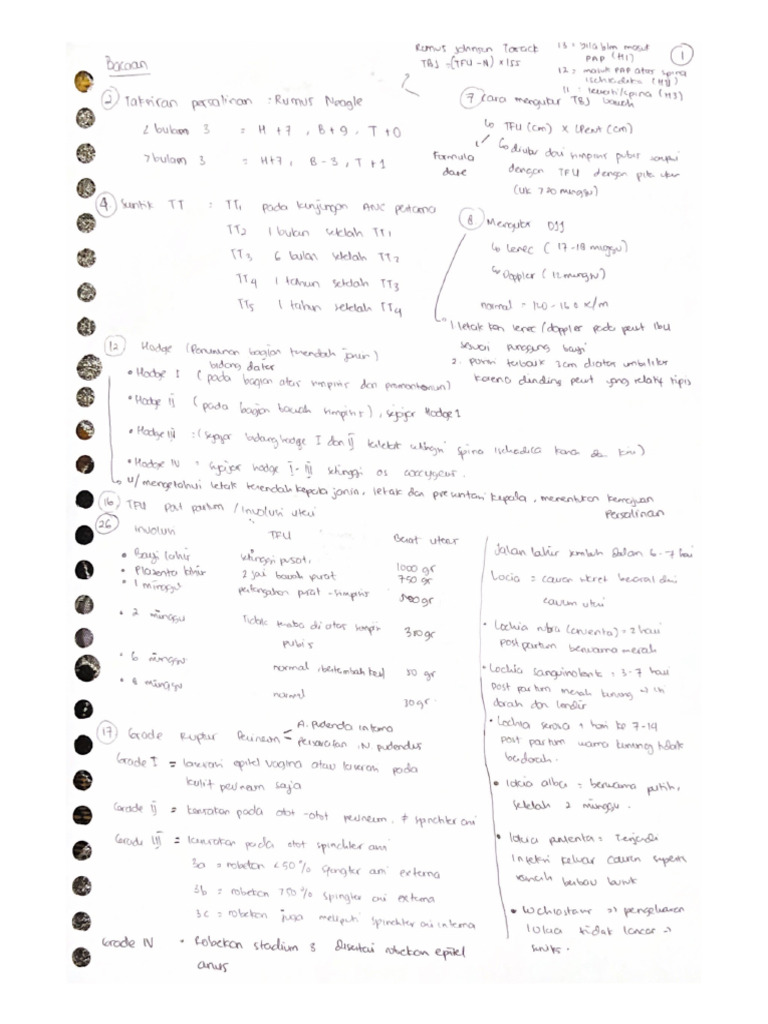 Bacaan
1
Rumus Johnson Torack
TBJ = (TFU - N) × 155
13 = bila blm masuk
PAP (H1)
12 = masuk PAP atas spina
ischiadika (H2)
11 = (H3)
2 Taksiran persalinan : Rumus Neagle
< bulan 3 = H + 7 , B + 9 , T + 0
> bulan 3 = H+7, B - 3, T + 1
7 Cara mengukur TBJ
TFU (cm) x LPerut (cm)
Formula
dare
diukur dari simpisis pubis sampai
dengan TFU dengan pita ukur
(UK > 20 minggu)
4. Suntik TT : TT1 pada kunjungan ANC pertama
TT2 1 bulan setelah TT1
TT3 6 bulan setelah TT2
TT4 1 tahun setelah TT3
TT5 1 tahun setelah TT4
8. Mengukur DJJ
Lenec ( 17-18 minggu)
Doppler (12 minggu)
normal = 120 - 160 x/m
1 letak kan lenec/doppler pada perut ibu
sesuai punggung bayi
2. terbaik 2cm diatas umbilikus
karena dinding perut yang relatif tipis
12 Hodge (Penurunan bagian terendah janin)
bidang datar
• Hodge I (pada bagian atas simpisis dan promontorium)
• Hodge II (pada bagian bawah simpisis), sejajar Hodge 1
• Hodge III : (sejajar bidang hodge I dan II terletak setinggi spina ischiadica kanan dan kiri)
• Hodge IV = sejajar hodge I - III setinggi os coccygeus.
u/ mengetahui letak terendah kepala janin, letak dan presentasi kepala, menentukan kemajuan
Persalinan
16 TFU Post partum / Involusi uteri
26
Involusi TFU Berat uterus
• Bayi lahir setinggi pusat, 1000 gr
• Plasenta lahir 2 jari bawah pusat 750 gr
• 1 minggu pertengahan pusat - simpisis 500 gr
• 2 minggu Tidak teraba di atas simpisis
pubis 350 gr
• 6 minggu normal, bertambah kecil 50 gr
• 8 minggu normal 30 gr
jalan lahir sembuh dalan 6-7 hari
Locia = cairan sekret berasal dari
cavum uteri
• Lochia rubra (cruenta) = 2 hari
post partum berwarna merah
• Lochia sanguinolenta = 3-7 hari
post partum merah kuning
darah dan lendir
• Lochia serosa = hari ke 7-14
post partum warna kuning tidak
berdarah.
• lokia alba = berwarna putih,
setelah 2 minggu.
• lokia purulenta = Terjadi
infeksi keluar cairan seperti
nanah berbau busuk
• Lochiostasis => pengeluaran
lokia tidak lancar →
17 Grade Ruptur Perineum
A. pudenda interna
persarafan : N pudendus
Grade I = laserasi epitel vagina atau laserasi pada
kulit perineum saja
Grade II = kerusakan pada otot-otot perineum, ≠ spinchter ani
Grade III = kerusakan pada otot spinchter ani
3a = robekan < 50 % spingter ani externa
3b = robekan > 50 % spingter ani externa
3c = robekan juga meliputi spinchter ani interna
Grade IV • Robekan stadium 3 disertai robekan epitel
anus